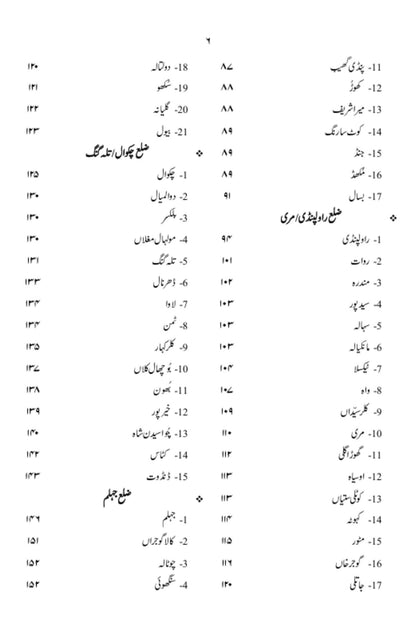 ۶
11- پنڈی گھیب ۸۷
12- کھوڑ ۸۸
13- میرا شریف ۸۸
14- کوٹ سارنگ ۸۹
15- جنڈ ۸۹
16- مکھڈ ۸۹
17- بسال ۹۱
❖ ضلع راولپنڈی/مری
1- راولپنڈی ۹۴
2- روات ۱۰۱
3- مندرہ ۱۰۲
4- سید پور ۱۰۳
5- سہالہ ۱۰۳
6- مانکیالہ ۱۰۳
7- ٹیکسلا ۱۰۴
8- واہ ۱۰۷
9- کلر سیّداں ۱۰۹
10- مری ۱۱۰
11- گھوڑا گلی ۱۱۲
12- اوسیاہ ۱۱۳
13- کوٹلی ستیاں ۱۱۳
14- کہوٹہ ۱۱۴
15- منور ۱۱۵
16- گوجر خاں ۱۱۶
17- جاتلی ۱۲۰
18- دولتالہ ۱۲۰
19- سُکھو ۱۲۱
20- گلیانہ ۱۲۲
21- بیول ۱۲۳
❖ ضلع چکوال/تلہ گنگ
1- چکوال ۱۲۵
2- دوالمیال ۱۳۰
3- بلکسر ۱۳۰
4- مولہال مغلاں ۱۳۰
5- تلہ گنگ ۱۳۱
6- ڈھرنال ۱۳۳
7- لاوا ۱۳۴
8- ٹمن ۱۳۴
9- کلر کہار ۱۳۵
10- بُوچھال کلاں ۱۳۷
11- بھون ۱۳۸
12- خیر پور ۱۳۹
13- چوا سیدن شاہ ۱۴۰
14- کٹاس ۱۴۲
15- ڈنڈوت ۱۴۳
❖ ضلع جہلم
1- جہلم ۱۴۶
2- کالا گوجراں ۱۵۱
3- چوٹالہ ۱۵۲
4- سنگھوئی ۱۵۲